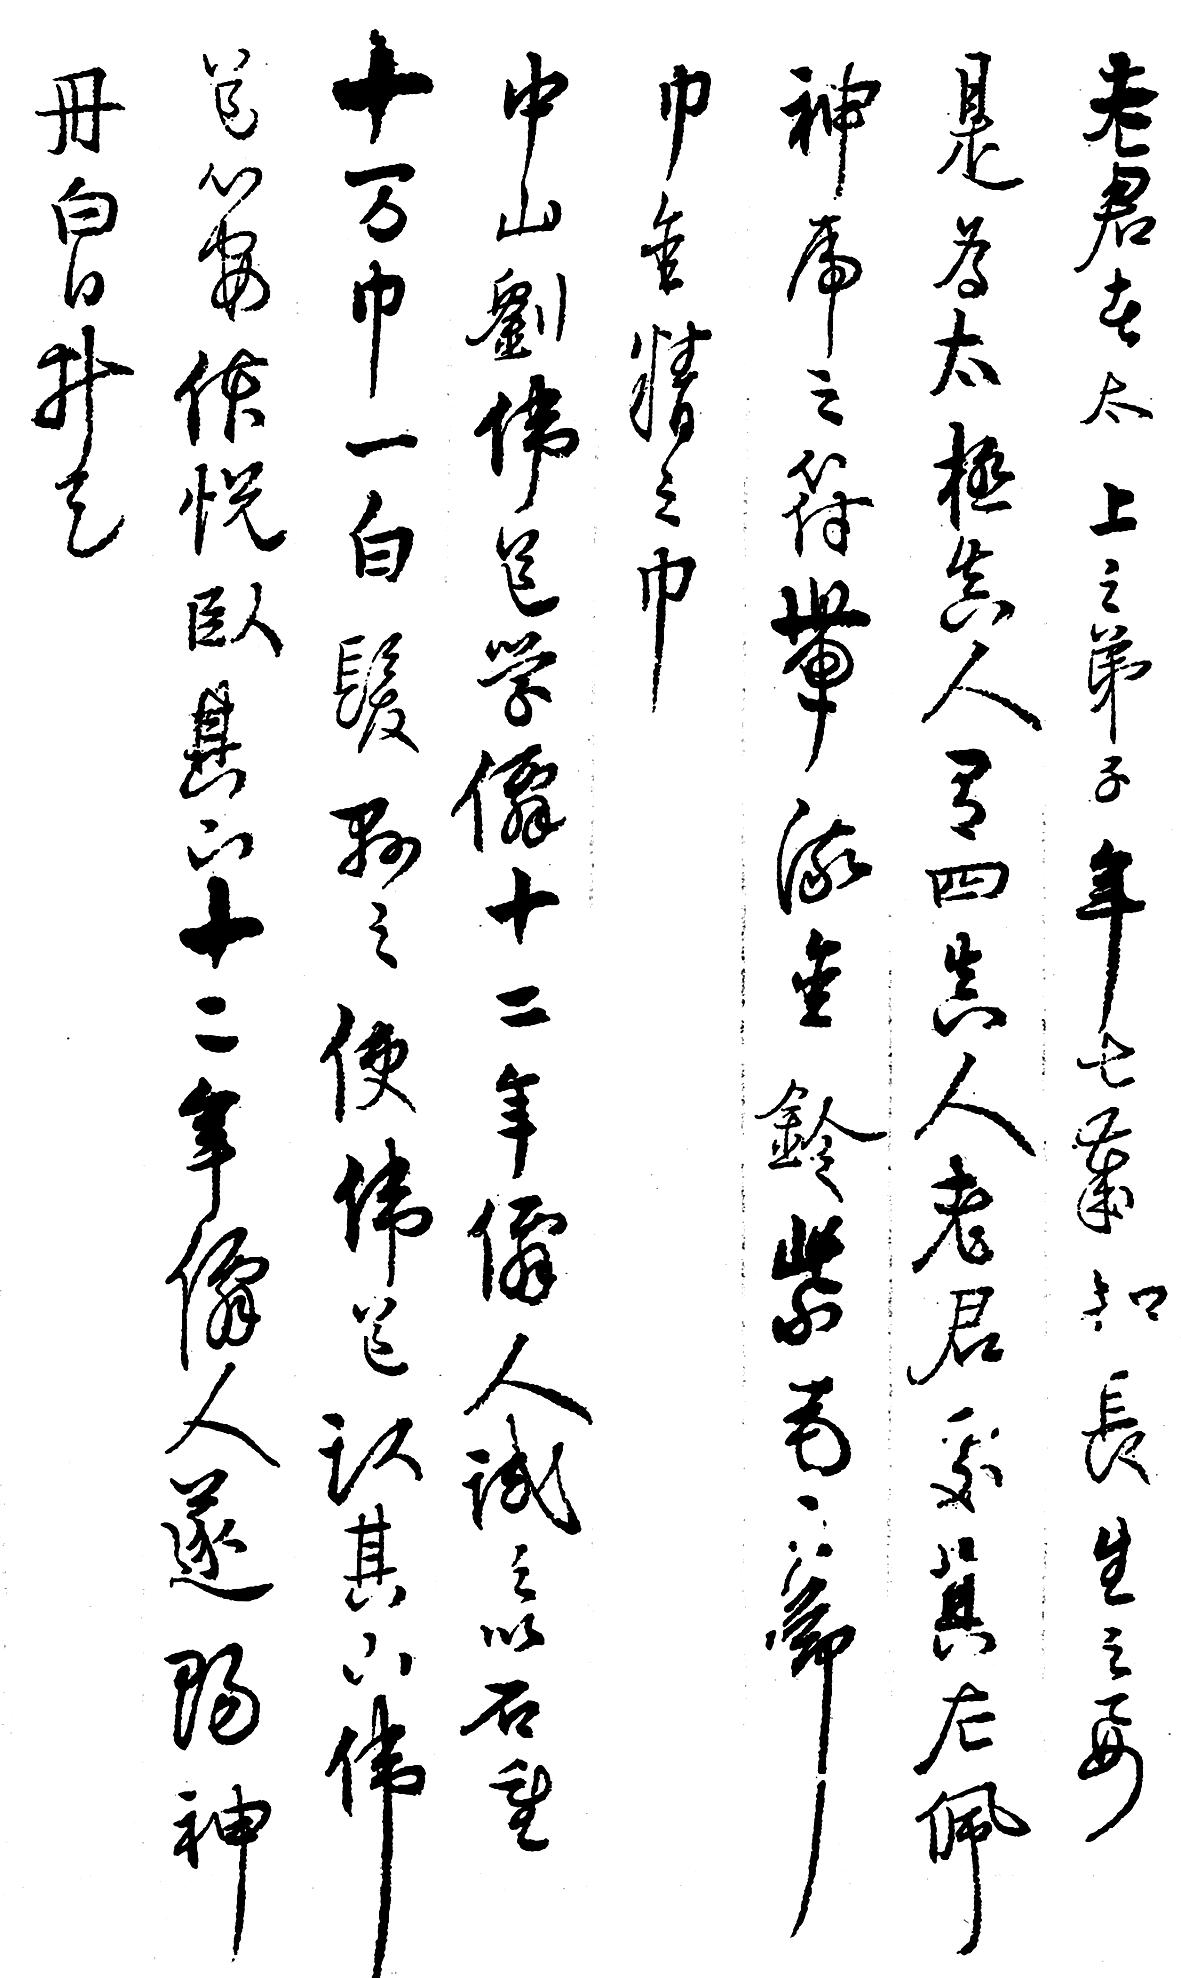 老君者太上之弟子年七歲知長生之要
是為太極真人有四真人老君處其左佩
神虎之符帶流金鈴紫毛之節
巾金精之巾
中山劉偉道學僊十二年僊人試之以石重
十万巾一白髮懸之使偉道臥其下偉
道心安体悦臥其下十二年僊人遂賜神
丹白日升天